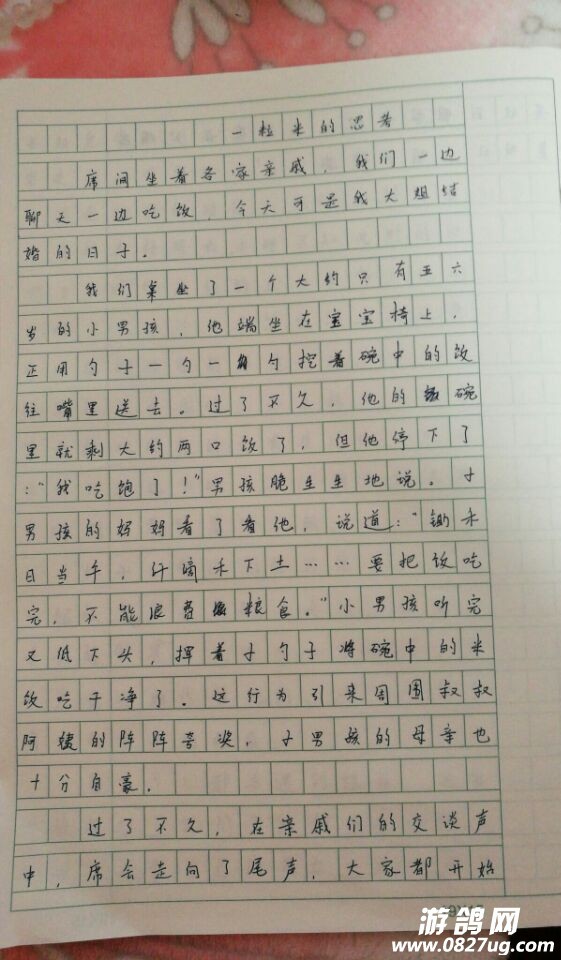 一粒米的思考
席间坐着各家亲戚，我们一边
聊天一边吃饭，今天可是我大姐结
婚的日子。
我们桌坐了一个大约只有五六
岁的小男孩，他端坐在宝宝椅上，
正用勺子一勺一勺挖着碗中的饭
往嘴里送去。过了不久，他的碗
里就剩大约两口饭了，但他停下了
：“我吃饱了！”男孩脆生生地说。小
男孩的妈妈看了看他，说道：“锄禾
日当午，汗滴禾下土……要把饭吃
完，不能浪费粮食。”小男孩听完
又低下头，挥着小勺子将碗中的米
饭吃干净了。这行为引来周围叔叔
阿姨的阵阵夸奖，小男孩的母亲也
十分自豪。
过了不久，在亲戚们的交谈声
中，席会走向了尾声，大家都开始
游鸽网
www.0827ug.com